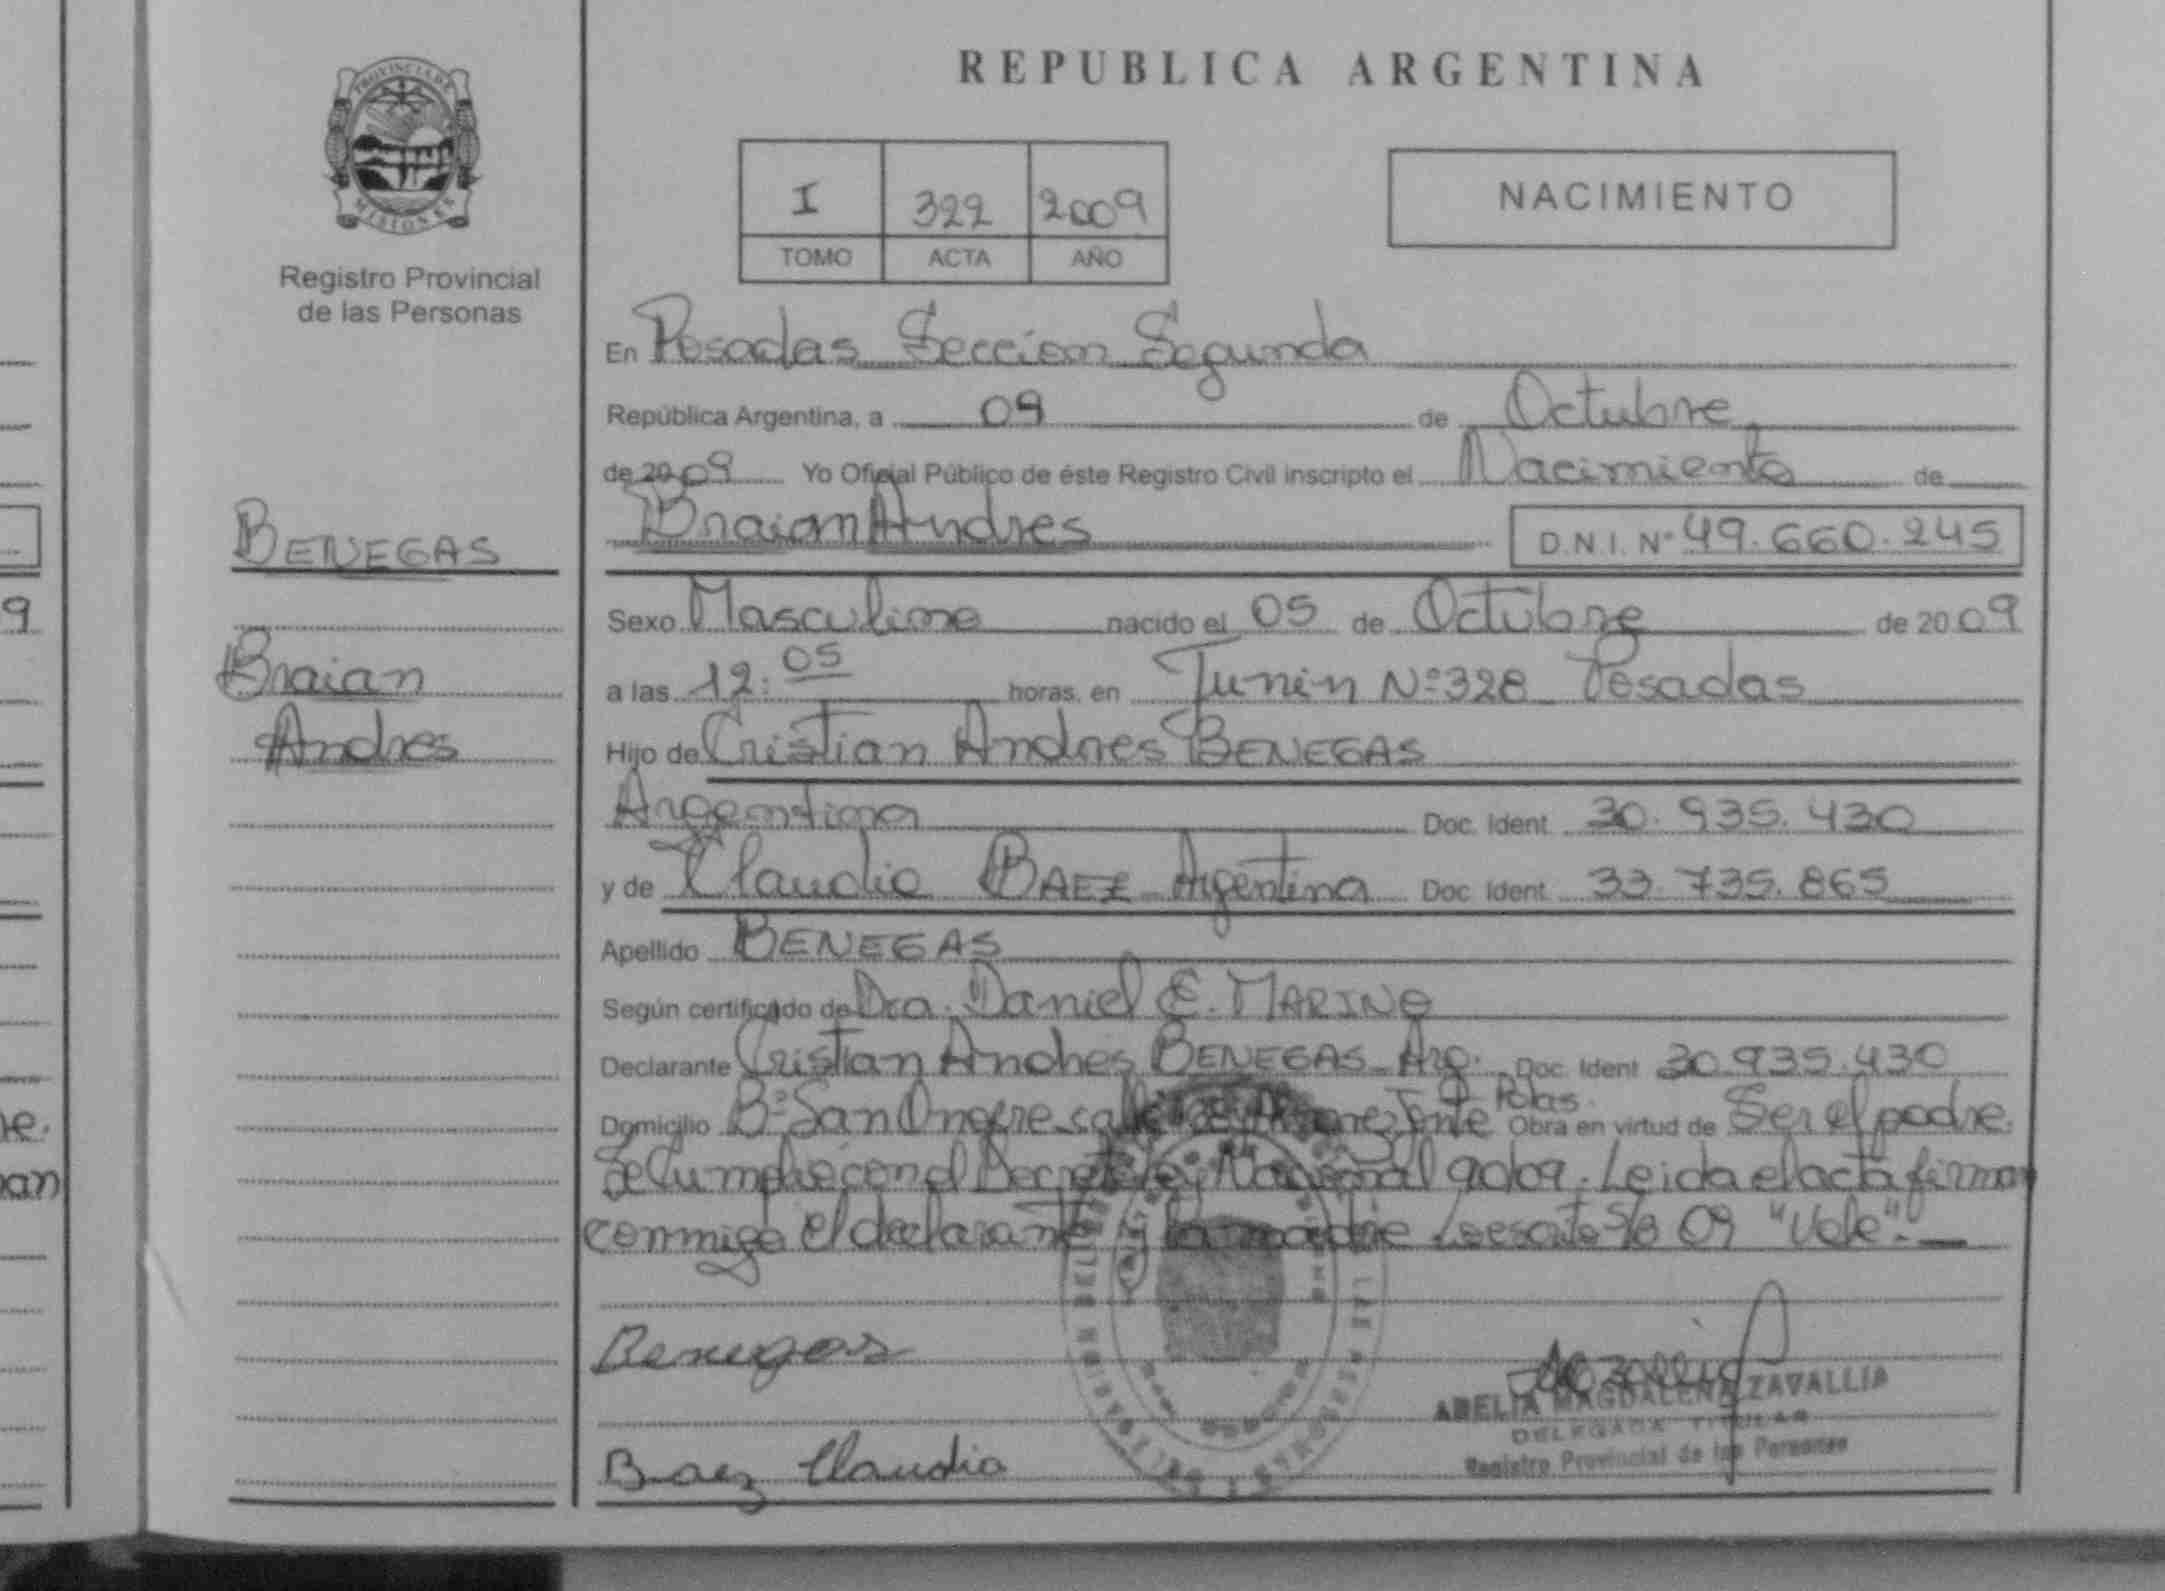 PROVINCIA DE
MISIONES
Registro Provincial
de las Personas
BENEGAS
Braian
Andres
REPUBLICA ARGENTINA
I 322 2009
TOMO ACTA AÑO
NACIMIENTO
En Posadas Seccion Segunda
República Argentina, a 09 de Octubre
de 2009 Yo Oficial Público de éste Registro Civil inscripto el Nacimiento de
Braian Andres D.N.I. Nº 49.660.245
Sexo Masculino nacido el 05 de Octubre de 2009
a las 12:05 horas, en Junin Nº 328 Posadas
Hijo de Cristian Andres BENEGAS
Argentina Doc. Ident 30.935.430
y de Claudia BAEZ Argentina Doc. Ident 33.735.865
Apellido BENEGAS
Según certificado de Dra. Daniel E. MARINO
Declarante Cristian Andres BENEGAS Arg. Doc. Ident 30.935.430
Domicilio Bº San Onofre Pdas. Obra en virtud de Ser el padre.
Se Cumple con el Decreto Ley Nacional 90/09. Leida el acta firman
conmigo el declarante y la madre Lo escrito S/B 09 "Vale".
Benegas
Baez Claudia
ABELIA MAGDALENA ZAVALLIA
DELEGADA TITULAR
Registro Provincial de las Personas
9
ne.
nan